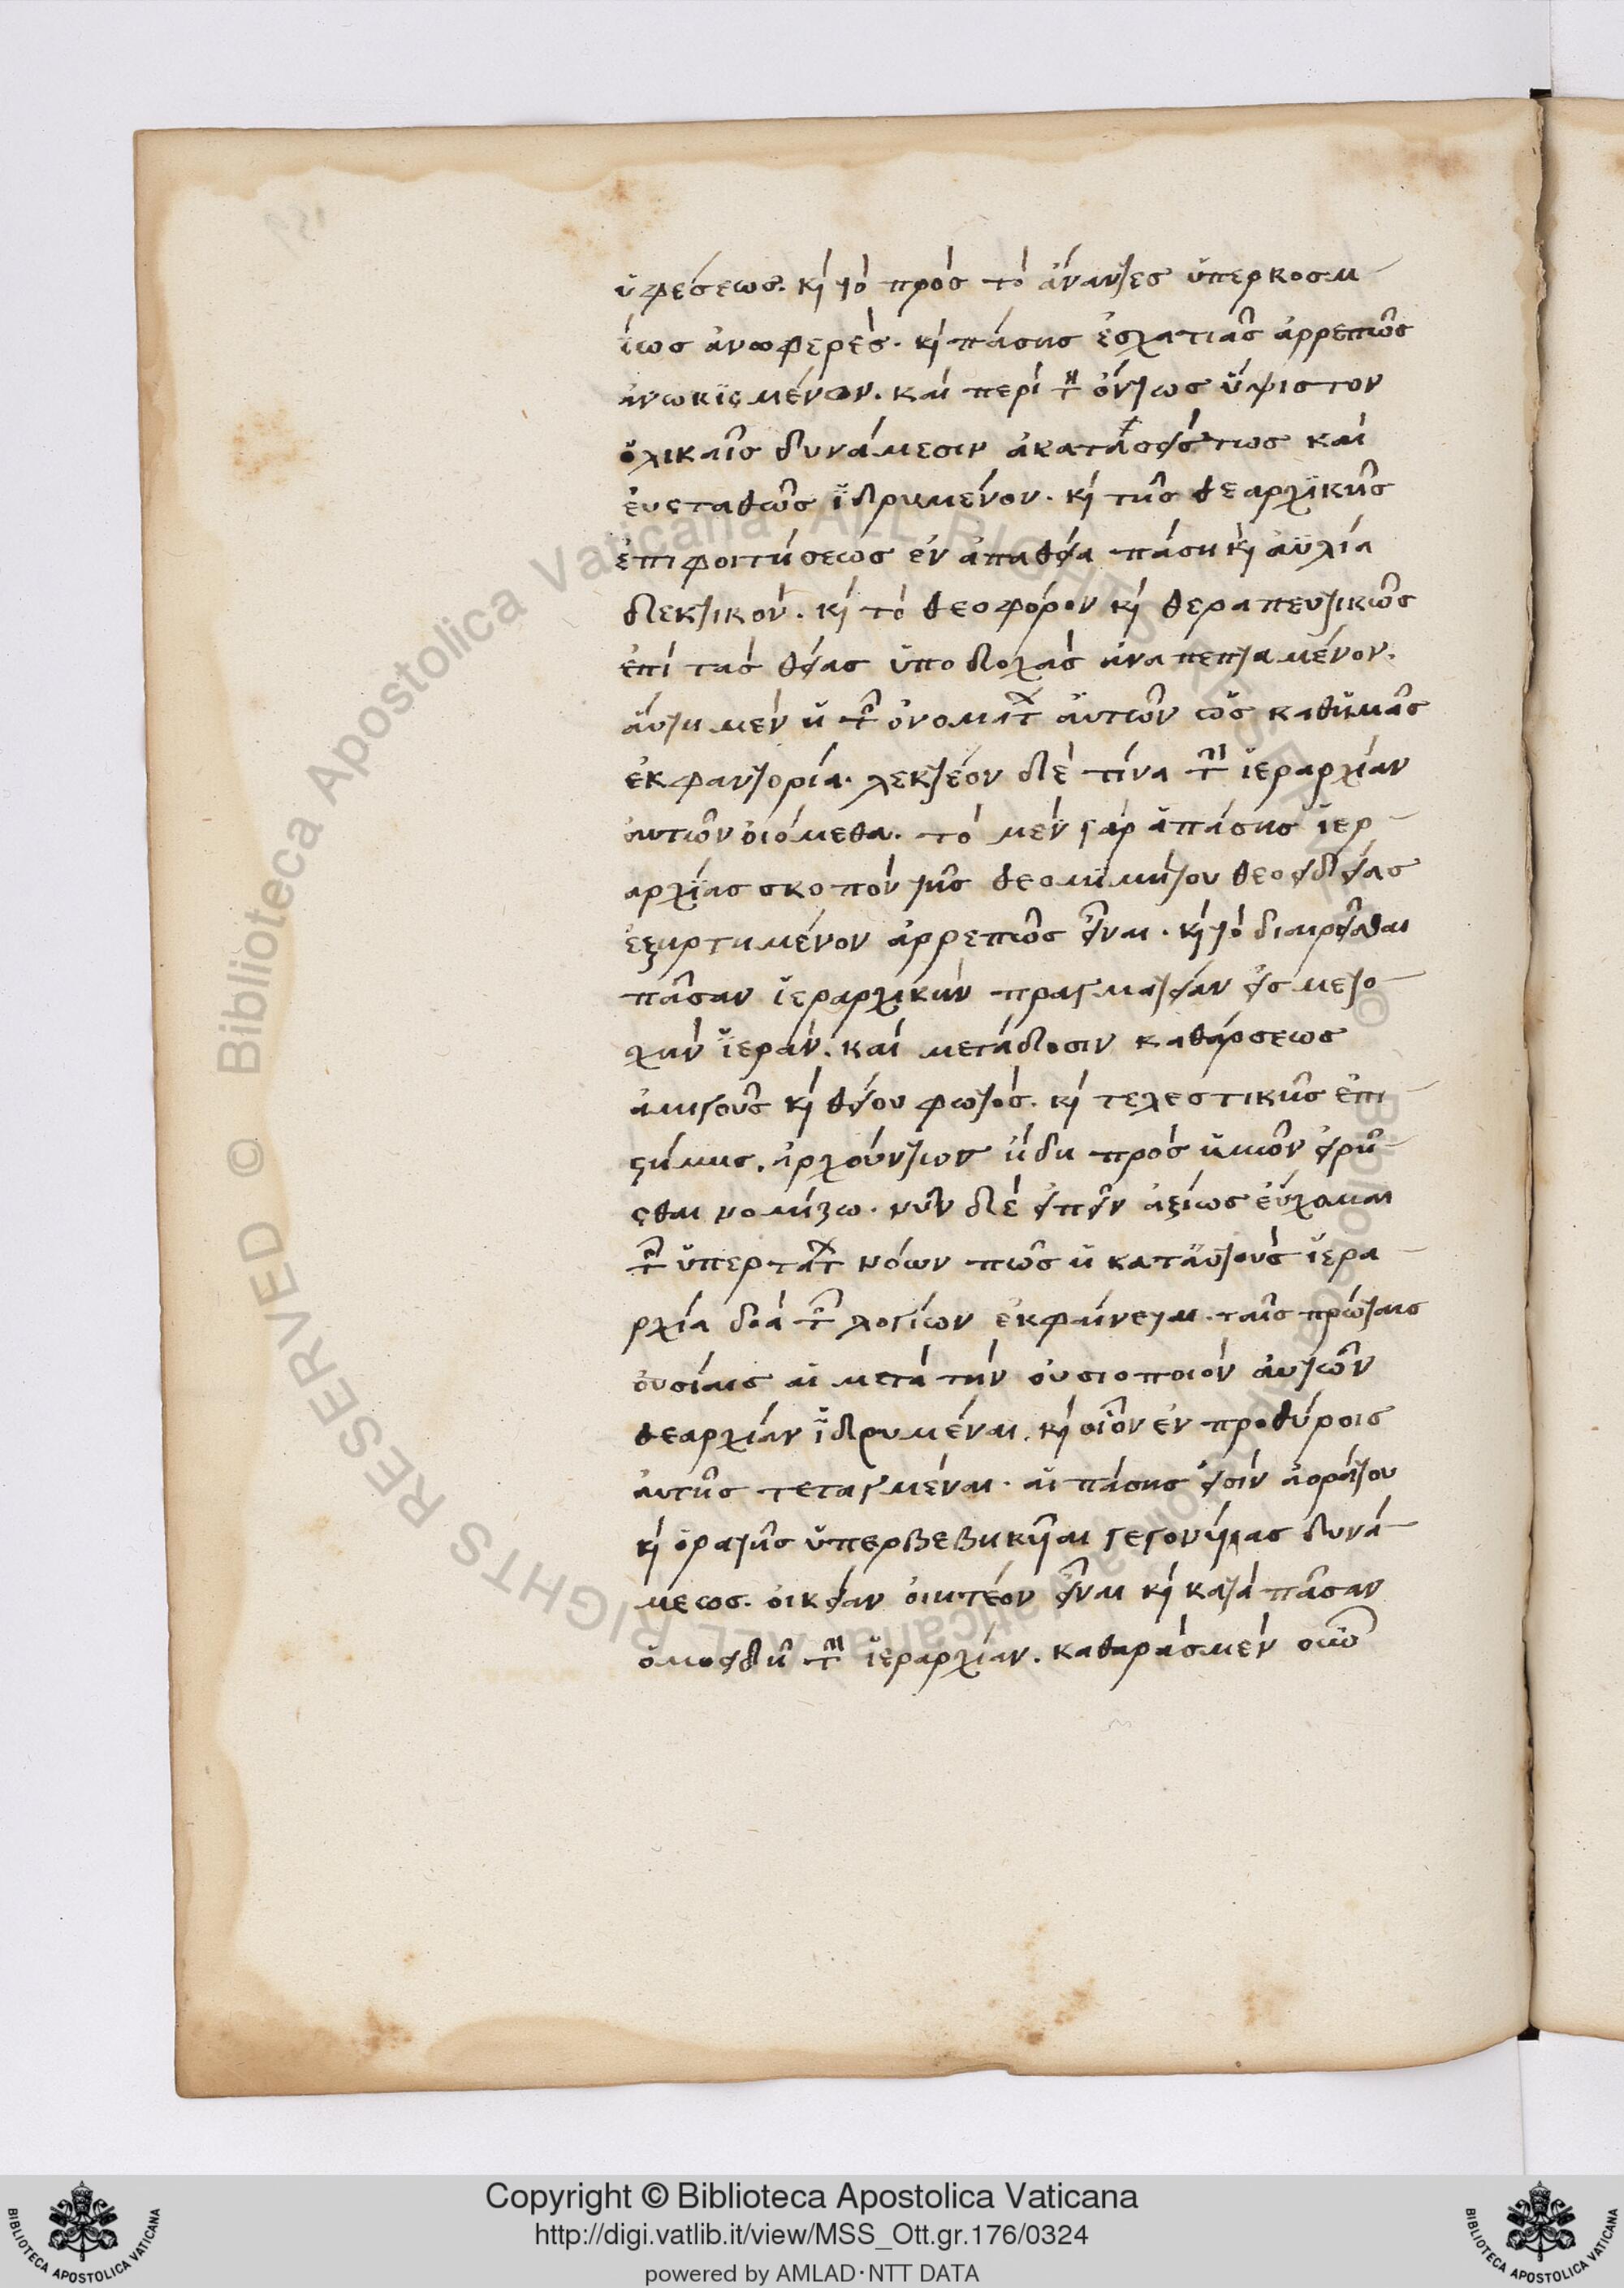 ὑφέσεως. κὶ τὸ πρὸς τὸ ἄναντες ὑπερκοσμ-
ίως ἀνωφερές. κὶ πάσης ἐσχατιᾶς ἀρρεπῶς
ἀνωκισμένον. καὶ περὶ τ̀ ὄντως ὕψιστον
ὁλικαῖς δυνάμεσιν ἀκατασείστως καὶ
εὐσταθῶς ἱδρυμένον. κὶ τῆς θεαρχικῆς
ἐπιφοιτήσεως ἐν ἀπαθεία πάση κὶ ἀϋλία
δεκτικόν. κὶ τὸ θεοφόρον κὶ θεραπευτικῶς
ἐπὶ τὰς θείας ὑποδοχὰς ἀναπεπταμένον.
ἄυτη μὲν ἡ τ͂ ὀνομάτ ἀυτῶν ὡς καθημᾶς
ἐκφαντορία. λεκτέον δὲ τίνα τ̀ ἱεραρχίαν
ἀυτῶν ὀιόμεθα. τὸ μὲν γὰρ ἁπάσης ἱερ-
αρχίας σκοπὸν τῆς θεομιμήτου θεοειδείας
ἐξηρτημένον ἀρρεπῶς εἶναι. κὶ τὸ διαιρεῖσθαι
πᾶσαν ἱεραρχικὴν πραγματείαν εἰς μετο-
χὴν ἱερὰν. καὶ μετάδοσιν καθάρσεως
ἀμιγοῦς κὶ θείου φωτός. κὶ τελεστικῆς ἐπι-
στήμης. ἀρχούντως ἤδη πρὸς ἡμῶν εἰρῆ-
σθαι νομίζω. νῦν δὲ εἰπεῖν ἀξίως ἐύχομαι
τ͂ ὑπερτάτ νόων πῶς ἡ κατάυτοὺς ἱερα-
ρχία διὰ τ͂ λογίων ἐκφαίνεται. ταῖς πρώταις
ὀυσίαις αἱ μετὰ τὴν ὀυσιοποιὸν ἀυτῶν
θεαρχίαν ἱδρυμέναι. κὶ οἷον ἐν προθύροις
ἀυτῆς τεταγμέναι. αἱ πάσης εἰσὶν ἀοράτου
κὶ ὁρατῆς ὑπερβεβηκῆαι γεγονήας δυνά-
μεως. ὀικείαν ὀιητέον εἶναι κὶ κατὰ πᾶσαν
ὁμοειδῆ τ̀ ἱεραρχίαν. καθαρὰςμὲν οὖν
Copyright © Biblioteca Apostolica Vaticana
http://digi.vatlib.it/view/MSS_Ott.gr.176/0324
powered by AMLAD·NTT DATA